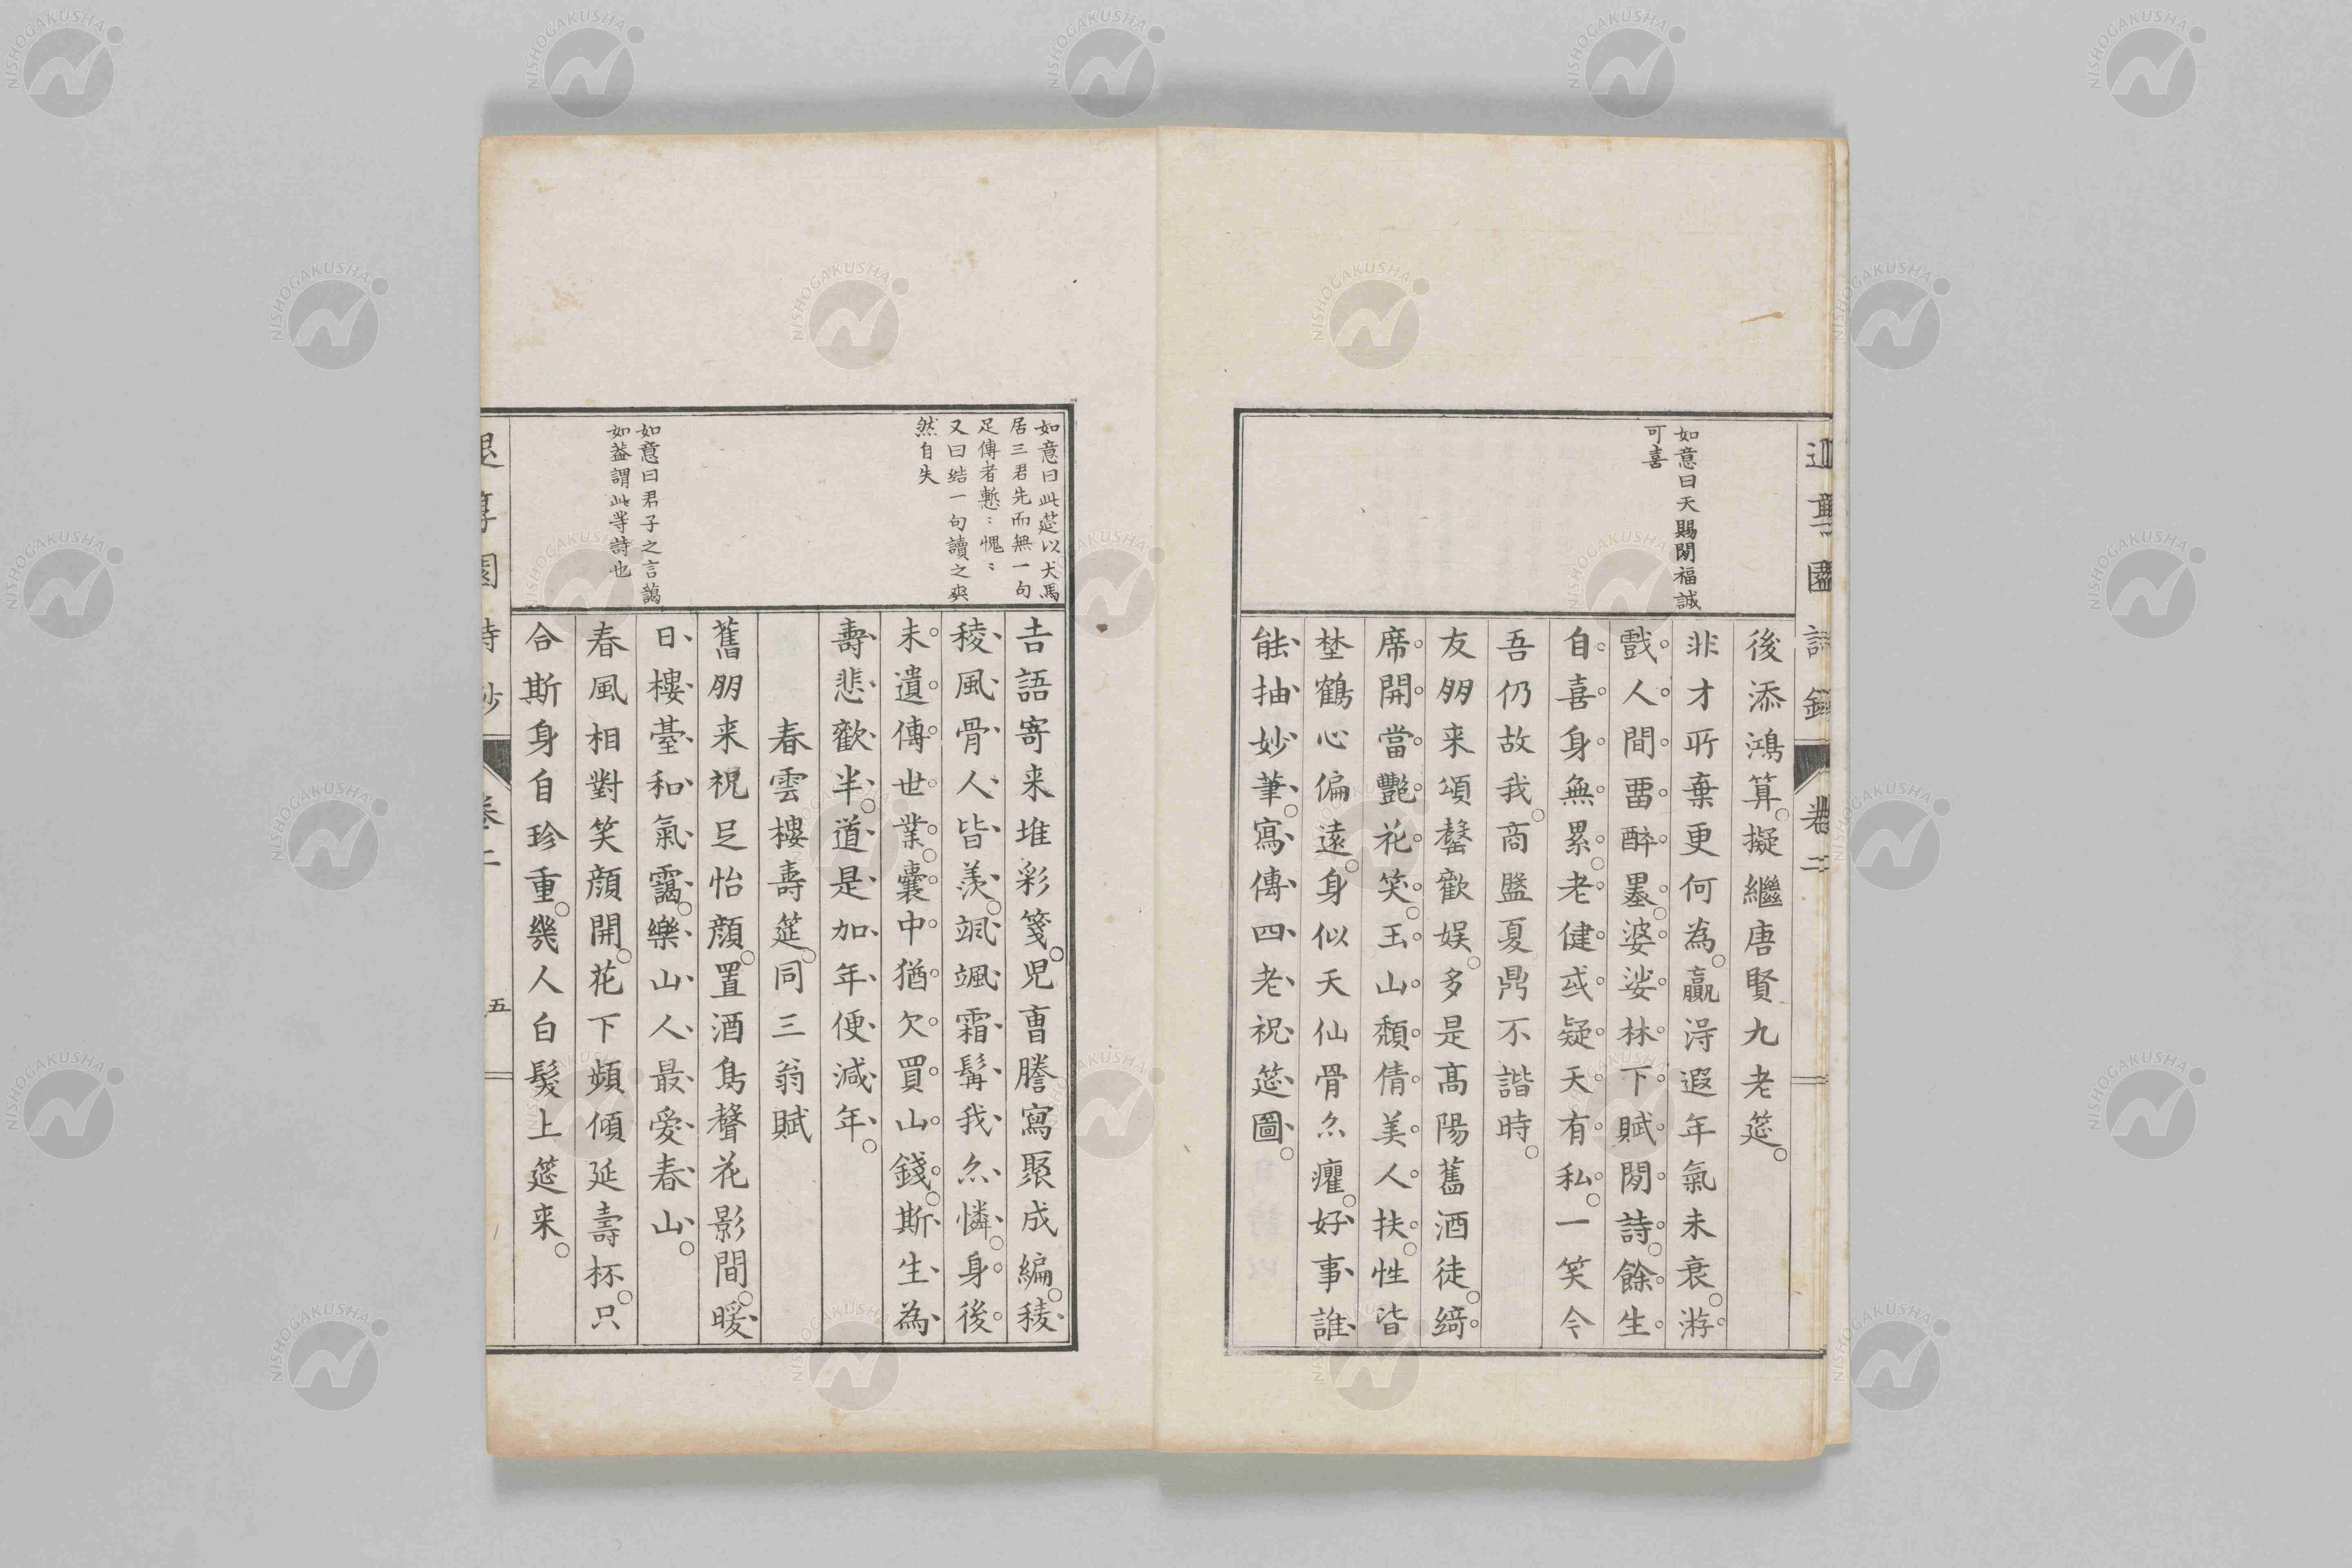 如意曰天賜閒福誠
可喜
後添鴻算擬繼唐賢九老筵
非才所棄更何為贏得遐年氣未衰游
戲人間畱醉墨婆娑林下賦閒詩餘生
自喜身無累老健或疑天有私一笑今
吾仍故我商盤夏鼎不諧時
友朋来頌罄歡娱多是高陽舊酒徒綺
席開當艷花笑玉山頹倩美人扶性皆
埜鶴心偏遠身似天仙骨亦癯好事誰
能抽妙筆寫傳四老祝筵圖
卷二
如意曰此筵以犬馬
居三君先而無一句
足傳者慙〻愧〻
又曰结一句讀之爽
然自失
如意曰君子之言藹
如葢謂此等詩也
吉語寄来堆彩箋児曺謄寫聚成編稜
稜風骨人皆羨颯颯霜髯我亦憐身後
未遺傳世業囊中猶欠買山錢斯生為
壽悲歡半道是加年便減年
春雲樓壽筵同三翁賦
舊朋来祝足怡顔置酒鳥聲花影間暖
日樓臺和氣靄樂山人最愛春山
春風相對笑顔開花下頻傾延壽杯只
合斯身自珍重幾人白髮上筵来
五
NISHOGAKUSHA